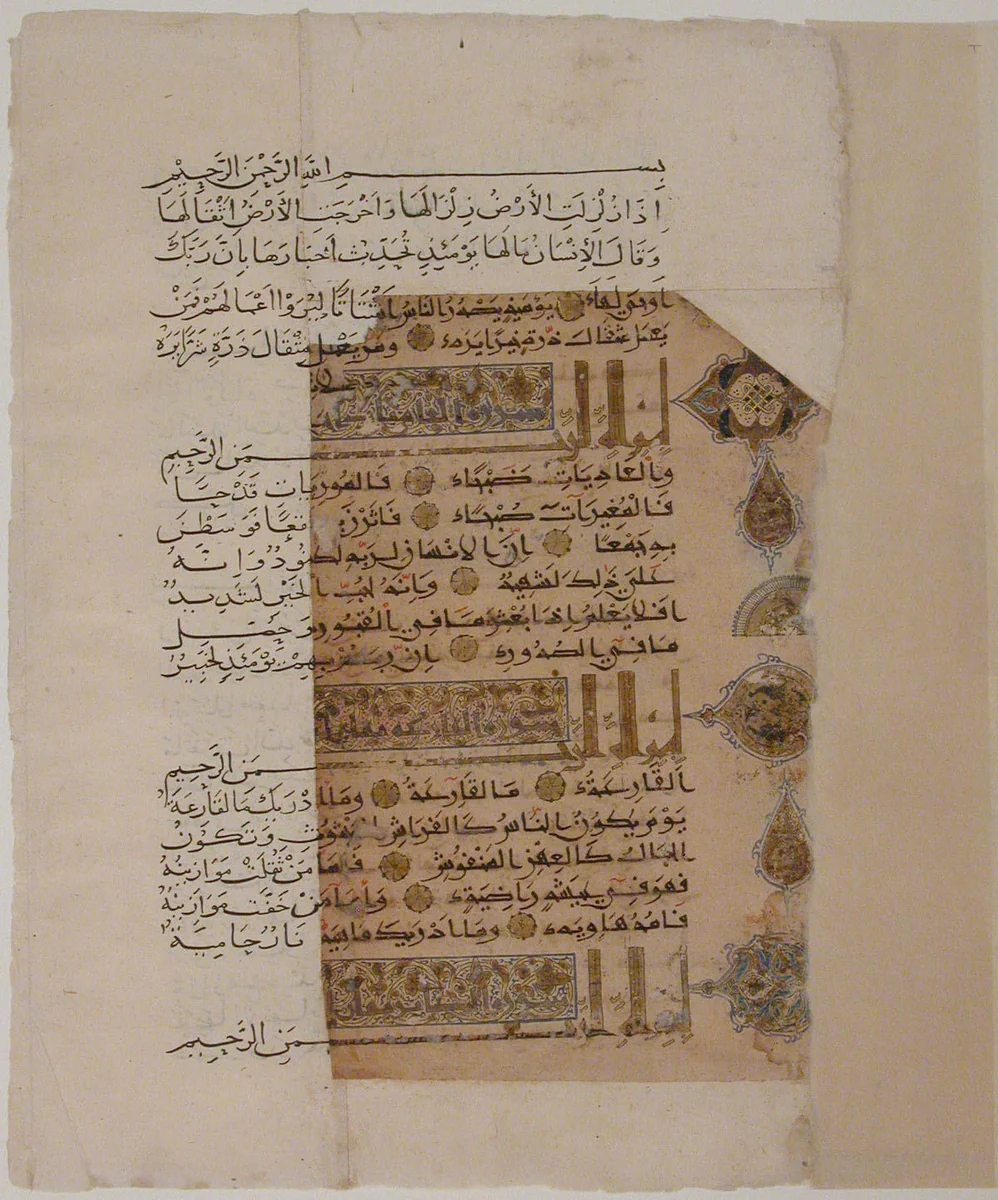 بِسْمِ اللهِ الرَّحْمٰنِ الرَّحِيْمِ
اِذَا زُلْزِلَتِ الْأَرْضُ زِلْزَالَهَا وَاَخْرَجَتِ الْأَرْضُ اَثْقَالَهَا
وَقَالَ الْاِنْسَانُ مَالَهَا يَوْمَئِذٍ تُحَدِّثُ اَخْبَارَهَا بِاَنَّ رَبَّكَ
اَوْحٰى لَهَا يَوْمَئِذٍ يَصْدُرُ النَّاسُ اَشْتَاتًا لِيُرَوْا اَعْمَالَهُمْ فَمَنْ
يَعْمَلْ مِثْقَالَ ذَرَّةٍ خَيْرًا يَرَهُ وَمَنْ يَعْمَلْ مِثْقَالَ ذَرَّةٍ شَرًّا يَرَهُ
سورة العاديات
بِسْمِ اللهِ الرَّحْمَنِ الرَّحِيْمِ
وَالْعَادِيَاتِ ضَبْحًا فَالْمُورِيَاتِ قَدْحًا
فَالْمُغِيرَاتِ صُبْحًا فَاَثَرْنَ بِهِ نَقْعًا فَوَسَطْنَ
بِهِ جَمْعًا اِنَّ الْاِنْسَانَ لِرَبِّهِ لَكَنُودٌ وَاِنَّهُ
عَلَى ذَلِكَ لَشَهِيدٌ وَاِنَّهُ لِحُبِّ الْخَيْرِ لَشَدِيدٌ
اَفَلَا يَعْلَمُ اِذَا بُعْثِرَ مَا فِي الْقُبُورِ وَحُصِّلَ
مَا فِي الصُّدُورِ اِنَّ رَبَّهُمْ بِهِمْ يَوْمَئِذٍ لَخَبِيرٌ
سورة القارعة
بِسْمِ اللهِ الرَّحْمَنِ الرَّحِيْمِ
اَلْقَارِعَةُ مَا الْقَارِعَةُ وَمَا اَدْرٰىكَ مَا الْقَارِعَةُ
يَوْمَ يَكُونُ النَّاسُ كَالْفَرَاشِ الْمَبْثُوثِ وَتَكُوْنُ
الْجِبَالُ كَالْعِهْنِ الْمَنْفُوشِ فَاَمَّا مَنْ ثَقُلَتْ مَوَازِيْنُهُ
فَهُوَ فِي عِيشَةٍ رَاضِيَةٍ وَاَمَّا مَنْ خَفَّتْ مَوَازِيْنُهُ
فَاُمُّهُ هَاوِيَةٌ وَمَا اَدْرٰىكَ مَاهِيَهْ نَارٌ حَامِيَةٌ
بِسْمِ اللهِ الرَّحْمَنِ الرَّحِيْمِ